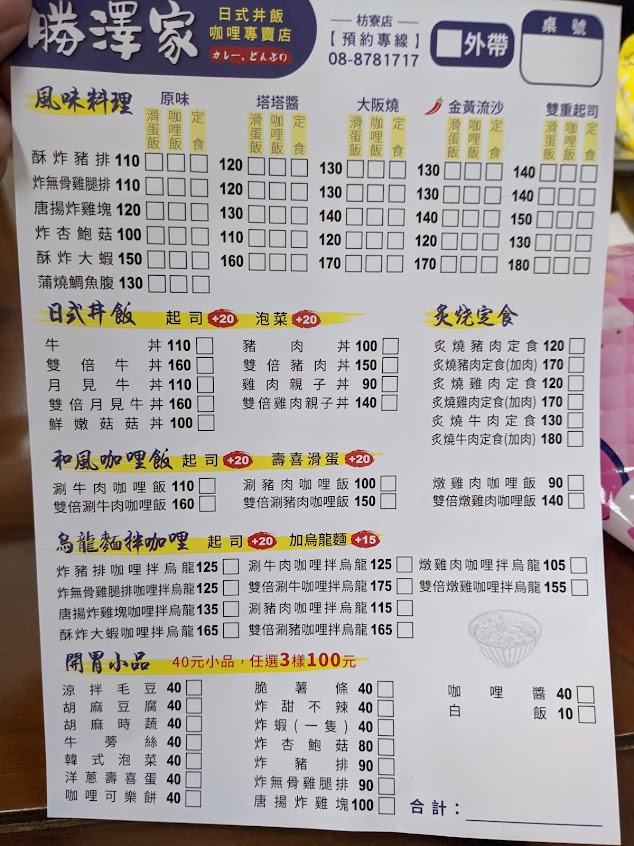 勝澤家 日式丼飯 咖哩專賣店 カレー。どんぶり
枋寮店
【預約專線】
08-8781717
外帶
桌號
風味料理 原味 塔塔醬 大阪燒 金黃流沙 雙重起司
滑蛋飯 咖哩飯 定食 滑蛋飯 咖哩飯 定食 滑蛋飯 咖哩飯 定食 滑蛋飯 咖哩飯 定食 滑蛋飯 咖哩飯 定食
酥炸豬排 110 120 130 130 140
炸無骨雞腿排 110 120 130 130 140
唐揚炸雞塊 120 130 140 140 150
炸杏鮑菇 100 110 120 120 130
酥炸大蝦 150 160 170 170 180
蒲燒鯛魚腹 130
日式丼飯 起司+20 泡菜+20
牛丼 110 豬肉丼 100
雙倍牛丼 160 雙倍豬肉丼 150
月見牛丼 110 雞肉親子丼 90
雙倍月見牛丼 160 雙倍雞肉親子丼 140
鮮嫩菇菇丼 100
炙燒定食
炙燒豬肉定食 120
炙燒豬肉定食(加肉) 170
炙燒雞肉定食 120
炙燒雞肉定食(加肉) 170
炙燒牛肉定食 130
炙燒牛肉定食(加肉) 180
和風咖哩飯 起司+20 壽喜滑蛋+20
涮牛肉咖哩飯 110 涮豬肉咖哩飯 100 燉雞肉咖哩飯 90
雙倍涮牛肉咖哩飯 160 雙倍涮豬肉咖哩飯 150 雙倍燉雞肉咖哩飯 140
烏龍麵拌咖哩 起司+20 加烏龍麵+15
炸豬排咖哩拌烏龍 125 涮牛肉咖哩拌烏龍 125 燉雞肉咖哩拌烏龍 105
炸無骨雞腿排咖哩拌烏龍 125 雙倍涮牛咖哩拌烏龍 175 雙倍燉雞咖哩拌烏龍 155
唐揚炸雞塊咖哩拌烏龍 135 涮豬肉咖哩拌烏龍 115
酥炸大蝦咖哩拌烏龍 165 雙倍涮豬咖哩拌烏龍 165
開胃小品 40元小品，任選3樣100元
涼拌毛豆 40 脆薯條 40 咖哩醬 40
胡麻豆腐 40 炸甜不辣 40 白飯 10
胡麻時蔬 40 炸蝦(一隻) 40
牛蒡絲 40 炸杏鮑菇 80
韓式泡菜 40 炸豬排 90
洋蔥壽喜蛋 40 炸無骨雞腿排 90
咖哩可樂餅 40 唐揚炸雞塊 100
合計：